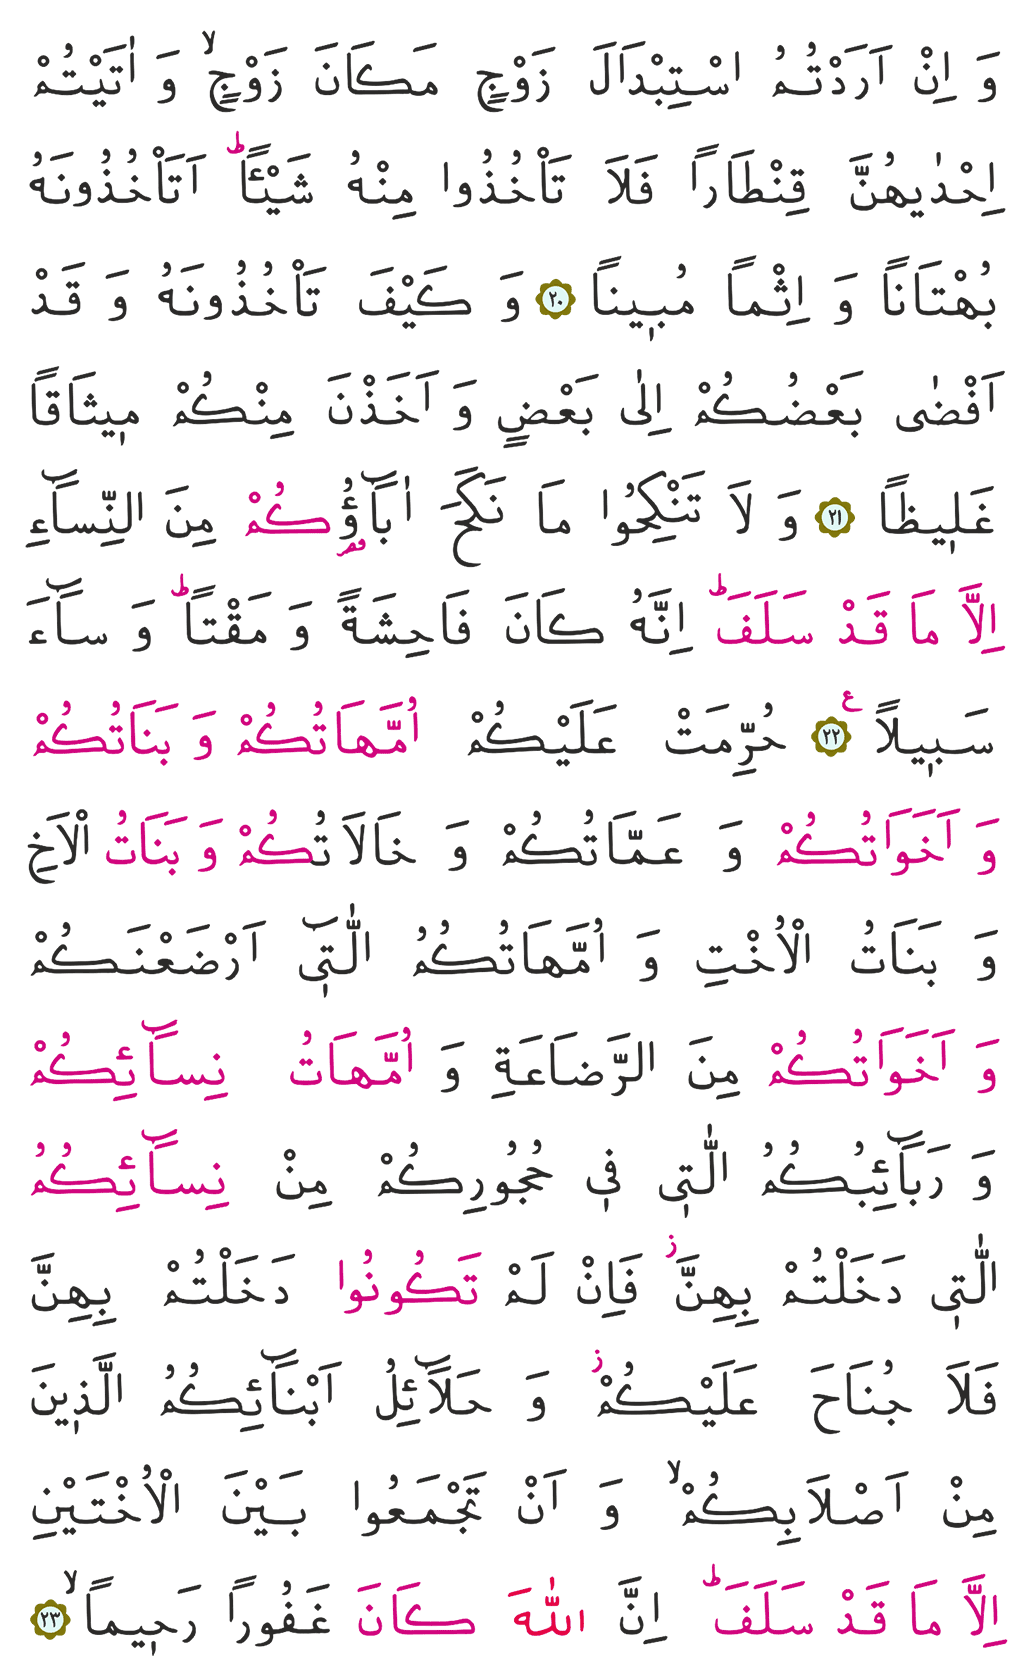 وَ اِنْ اَرَدْتُمُ اسْتِبْدَالَ زَوْجٍ مَكَانَ زَوْجٍۙ وَ اٰتَيْتُمْ
اِحْدٰيهُنَّ قِنْطَاراً فَلَا تَاْخُذُوا مِنْهُ شَيْـًٔاۜ اَتَاْخُذُونَهُ
بُهْتَاناً وَ اِثْماً مُب۪يناً ﴿٢٠﴾ وَ كَيْفَ تَاْخُذُونَهُ وَ قَدْ
اَفْضٰى بَعْضُكُمْ اِلٰى بَعْضٍ وَ اَخَذْنَ مِنْكُمْ م۪يثَاقاً
غَل۪يظاً ﴿٢١﴾ وَ لَا تَنْكِحُوا مَا نَكَحَ اٰبَٓاؤُ۬كُمْ مِنَ النِّسَٓاءِ
اِلَّا مَا قَدْ سَلَفَۜ اِنَّهُ كَانَ فَاحِشَةً وَ مَقْتاًۜ وَ سَٓاءَ
سَب۪يلاً۟ ﴿٢٢﴾ حُرِّمَتْ عَلَيْكُمْ اُمَّهَاتُكُمْ وَ بَنَاتُكُمْ
وَ اَخَوَاتُكُمْ وَ عَمَّاتُكُمْ وَ خَالَاتُكُمْ وَ بَنَاتُ الْاَخِ
وَ بَنَاتُ الْاُخْتِ وَ اُمَّهَاتُكُمُ الّٰت۪ٓي اَرْضَعْنَكُمْ
وَ اَخَوَاتُكُمْ مِنَ الرَّضَاعَةِ وَ اُمَّهَاتُ نِسَٓائِكُمْ
وَ رَبَٓائِبُكُمُ الّٰت۪ي ف۪ي حُجُورِكُمْ مِنْ نِسَٓائِكُمُ
الّٰت۪ي دَخَلْتُمْ بِهِنَّۘ فَاِنْ لَمْ تَكُونُوا دَخَلْتُمْ بِهِنَّ
فَلَا جُنَاحَ عَلَيْكُمْۘ وَ حَلَٓائِلُ اَبْنَٓائِكُمُ الَّذ۪ينَ
مِنْ اَصْلَابِكُمْۙ وَ اَنْ تَجْمَعُوا بَيْنَ الْاُخْتَيْنِ
اِلَّا مَا قَدْ سَلَفَۜ اِنَّ اللّٰهَ كَانَ غَفُوراً رَح۪يماًۙ ﴿٢٣﴾